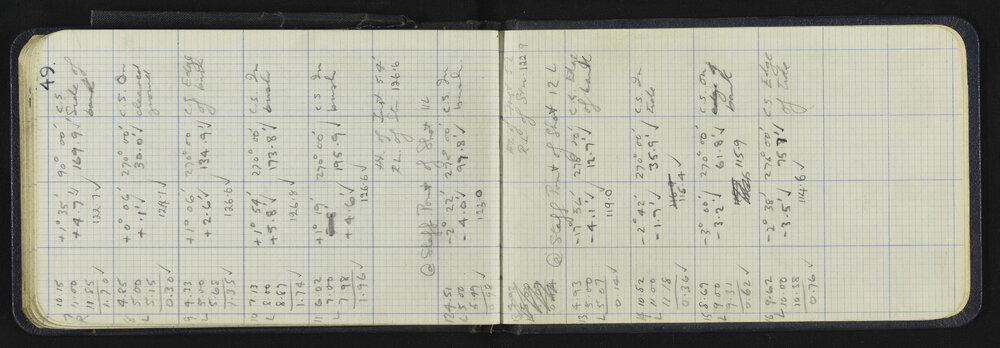 49.
7 10.15 +1° 35' 90° 00' C.S.
R 11.00 +4.7'√ 169.9'√ Side of
11.85 122.7√ bank
1.70√
8 4.85 +0° 06' 270° 00' C.S. On
L 5.00 +.1'√ 30.0'√ cleared
5.15 ground
0.30√
9 4.33 +1° 06' 270° 00' C.S. Edge
L 5.00 +2.6'√ 134.9'√ of bush
5.68 126.6√
1.35√
10 7.13 +1° 54' 270° 00' C.S. In
L 8.00 +5.8'√ 173.8'√ bush
8.87 126.8√
1.74√
11 6.02 +1° 19' 270° 00' C.S. In
L 7.00 +4.6'√ 195.9'√ bush
7.98 126.6√
1.96√
Ht. of Inst 5.4'
R.L. of Stn 126.6
@ Staff Point of Shot 11L
12 4.51 -2° 22' 270° 00' C.S. In
L 5.00 -4.0'√ 97.8'√ bush
5.49 123.0
0.98
Ht. Inst 5.2
R.L. of Stn 122.9
@ Staff Point of Shot 12 L
13 4.93 -17° 56' 270° 00' C.S. Edge
L 5.00 -4.1'√ 12.7'√ of bank
5.07 119.0
0.14√
14 10.82 -2° 42' 270° 00' C.S. In
L 11.00 -1.7'√ 35.9'√ tide
11.18 116.4
0.36√
15 8.69 -3° 00' 270° 00' C.S. On
L 9.00 -3.2'√ 61.8'√ edge of
9.31 115.9 bank
0.62√
16 9.62 -2° 38' 270° 00' C.S. Edge
L 10.00 -3.5'√ 75.9'√ of tide
10.38 114.6√
0.76√